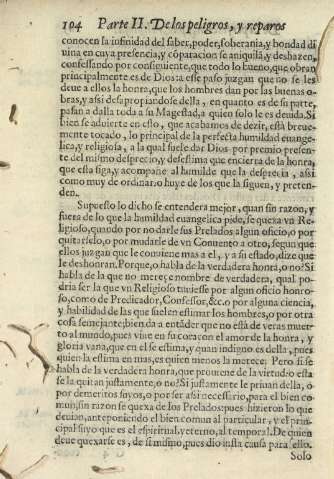 104 Parte II. De los peligros, y reparos
conocen la infinidad del saber, poder, soberania, y bondad di
uina en cuya presencia, y cõparacion se aniquilã, y deshazen,
confessando por consiguiente, que todo lo bueno, que obran
principalmente es de Dios: a esse paso juzgan que no se les
deue a ellos la honra, que los hombres dan por las buenas o-
bras, y assi desapropiandose della, en quanto es de su parte,
pasan a dalla toda a su Magestad, a quien solo le es deuida. Si
bien se aduierte en esto, que acabamos de dezir, està breue-
mente tocado, lo principal de la perfecta humildad euange-
lica, y religiosa, a la qual suele dar Dios por premio presen-
te del mismo desprecio, y desestima que encierra de la honra,
que esta siga, y acompañe al humilde que la desprecia, assi
como muy de ordinario huye de los que la siguen, y preten-
den.
Supuesto lo dicho se entendera mejor, quan sin razon, y
fuera de lo que la humildad euangelica pide, se quexa vn Re-
ligioso, quando por no darle sus Prelados algun oficio, o por
quitarselo, o por mudarle de vn Conuento a otro, segun que
ellos juzgan que le conuiene mas a el, y a su estado, dize que
le deshonran. Porque, o habla de la verdadera honra, o no? Si
habla de la que no merece nombre de verdadera, qual po-
dria ser la que vn Religioso tuuiesse por algun oficio honro-
so, como de Predicador, Confessor, &c. o por alguna ciencia,
y habilidad de las que suelen estimar los hombres, o por otra
cosa semejante; bien da a entẽder que no està de veras muer-
to al mundo, pues viue en su coraçon el amor de la honra, y
gloria vana, que en el se estima, y quan indigno es della, pues
quien la estima en mas, es quien menos la merece. Pero si se
habla de la verdadera honra, que prouiene de la virtud: o esta
se la quitan justamente, o no? Si justamente le priuan della, ò
por demeritos suyos, o por ser assi necessario, para el bien co-
mun; sin razon se quexa de los Prelados: pues hizieron lo que
deuian, anteponiendo el bien comun al particular, y el prin-
cipal suyo que es el espiritual, y eterno, al temporal. De quien
deue quexarse es, de si mismo, pues dio justa causa para ello.
Solo